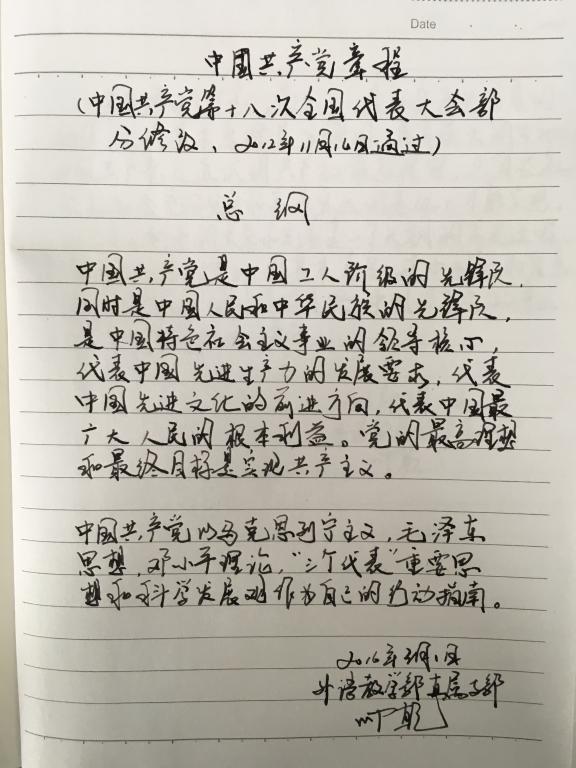 Date
中国共产党章程
(中国共产党第十八次全国代表大会部
分修改，2012年11月14日通过)
总 纲
中国共产党是中国工人阶级的先锋队，
同时是中国人民和中华民族的先锋队，
是中国特色社会主义事业的领导核心，
代表中国先进生产力的发展要求，代表
中国先进文化的前进方向，代表中国最
广大人民的根本利益。党的最高理想
和最终目标是实现共产主义。
中国共产党以马克思列宁主义，毛泽东
思想，邓小平理论，“三个代表”重要思
想和科学发展观作为自己的行动指南。
2016年3月1日
外语教学部直属支部